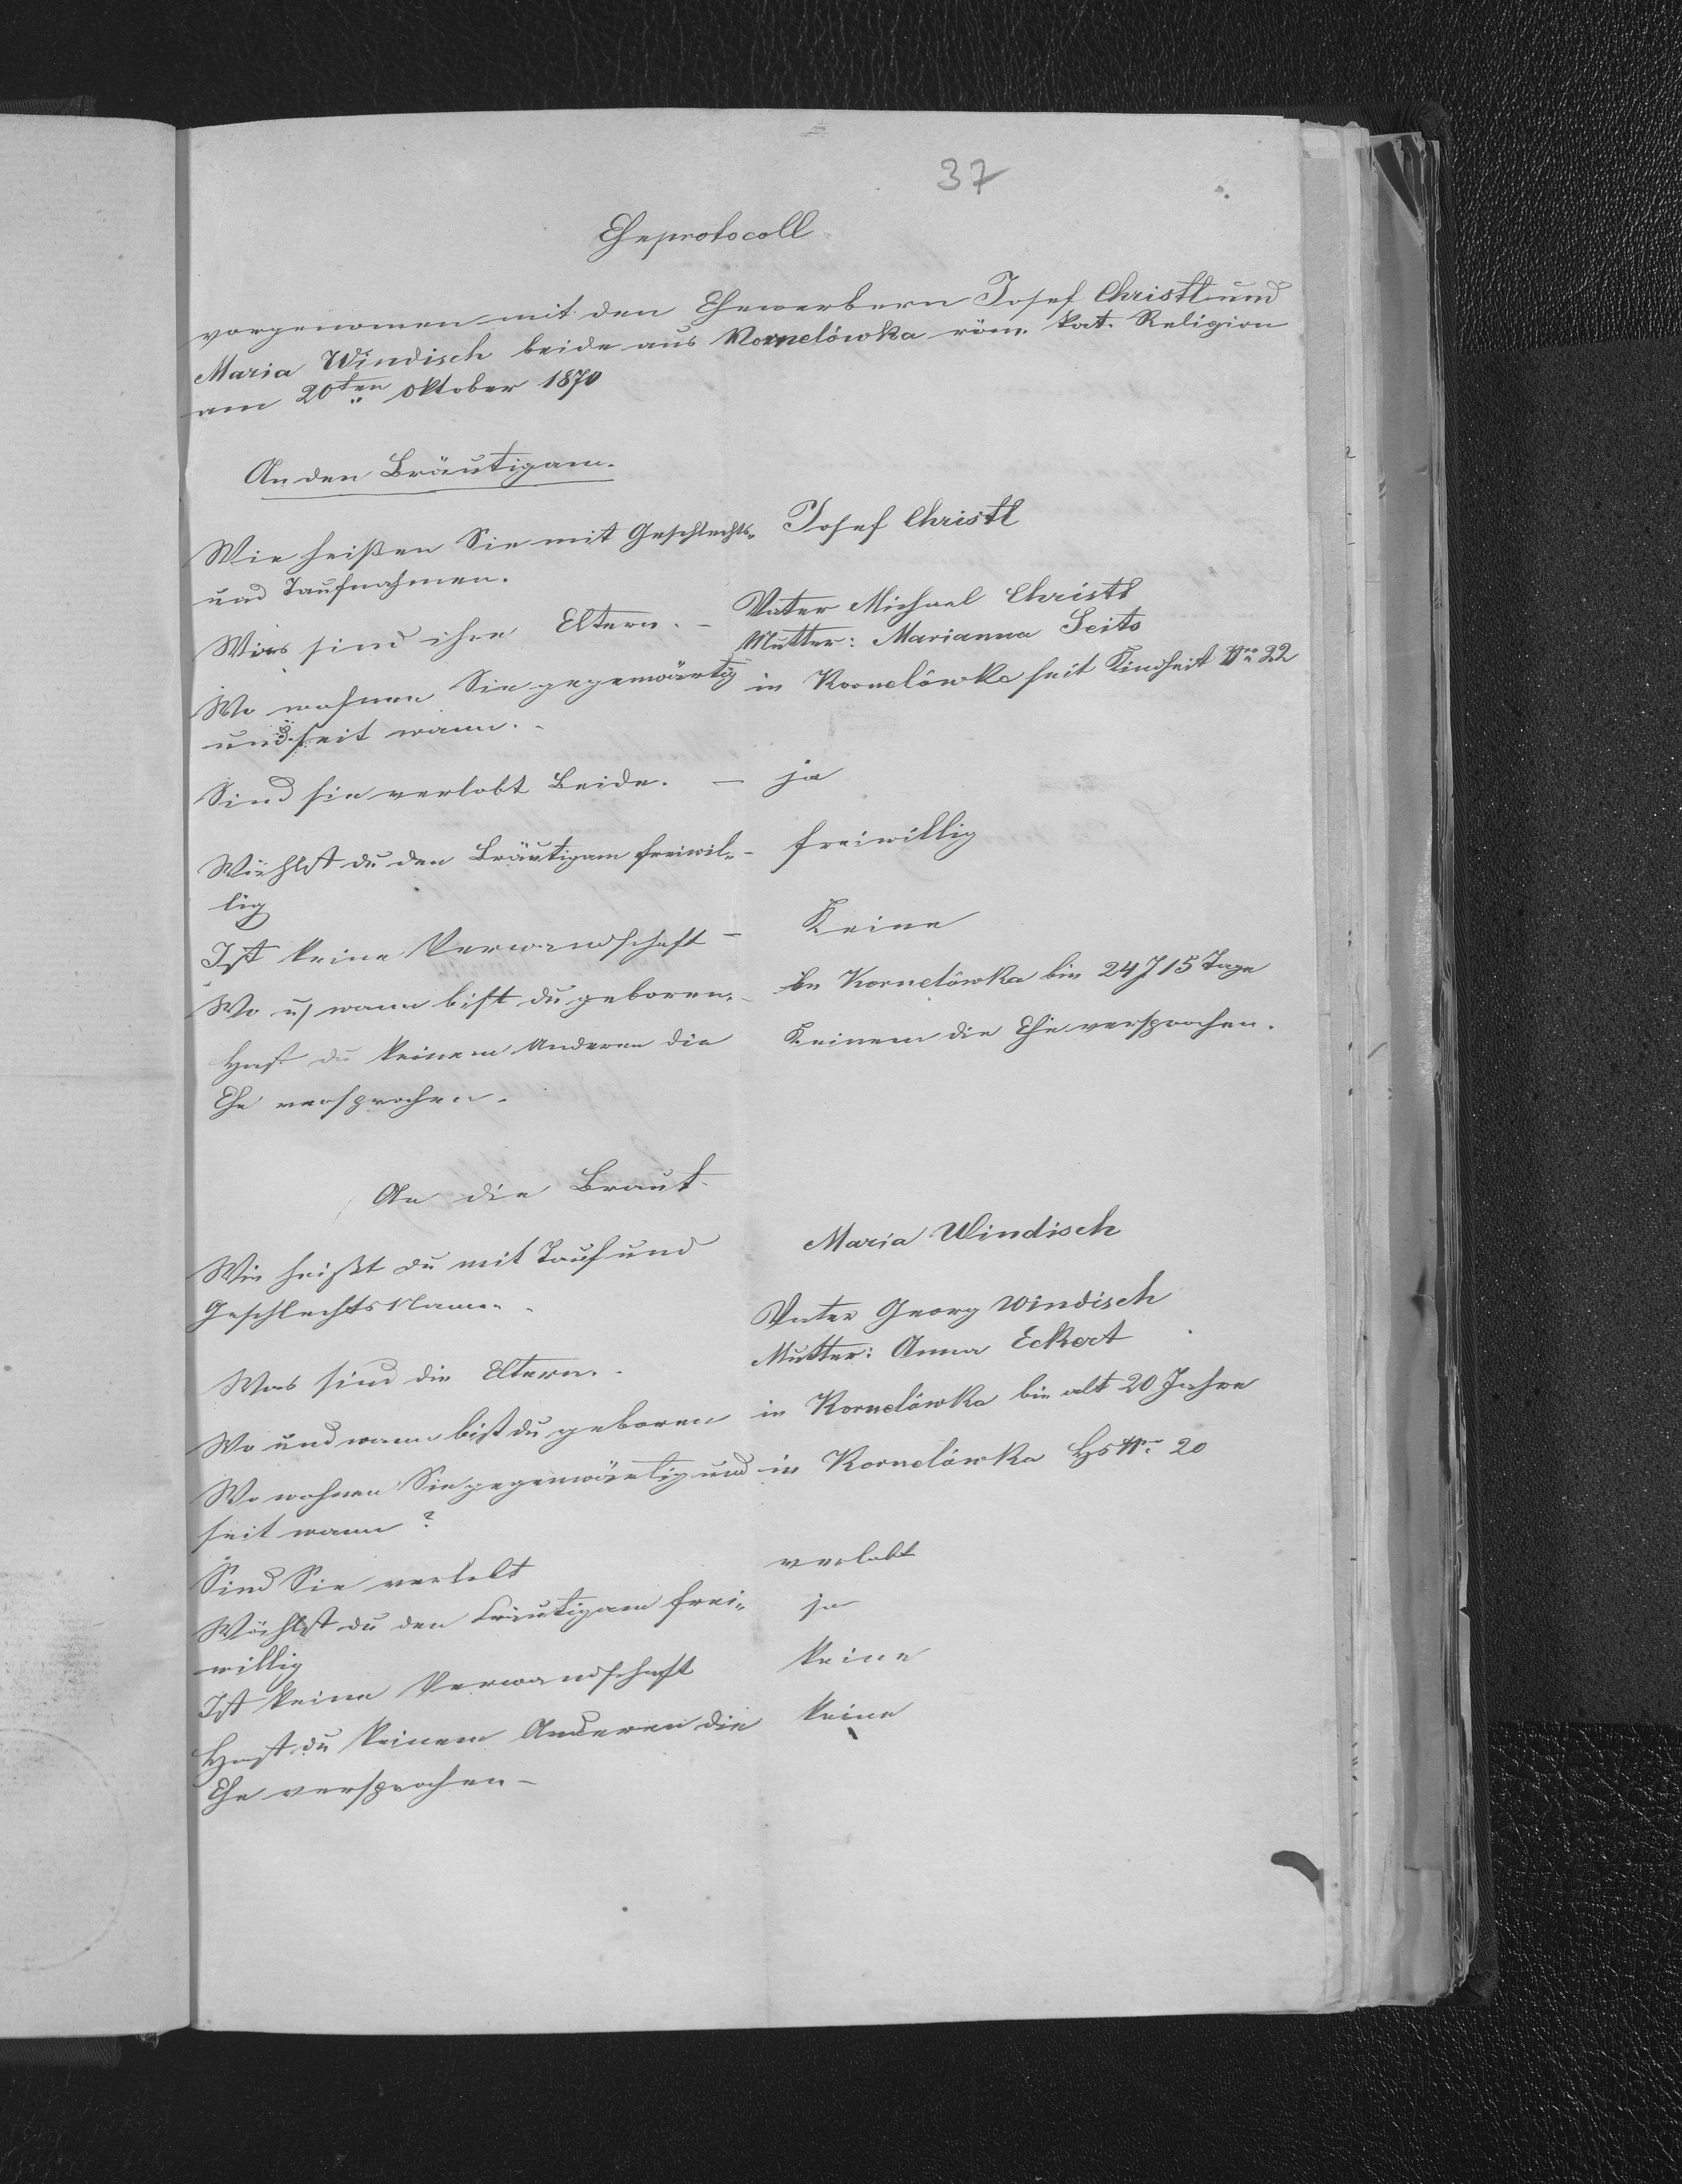 37
Eheprotocoll
vorgenomen mit den Ehewerbern Josef Christl und
Maria Windisch beide aus Kornelówka röm. kat. Religion
am 20ten Oktober 1870
An den Bräutigam.
Wie heißen Sie mit Geschlechts- Josef Christl
und Taufnahmen.
Wies sind ihre Eltern. - Vater Michael Christl
Mutter: Marianna Seits
Wo wohnen Sie gegenwärtig in Kornelówka seit Kindheit Nro 22
und seit wann. -
Sind sie verlobt Beide. - ja
Wählst du den Bräutigam freiwil- - freiwillig
lig
Ist keine Verwandschaft - Keine
Wo u) wann bist du geboren. - In Kornelówka bin 24 J 15 Tage
Hast du keinem Anderen die Keinem die Ehe versprochen.
Ehe versprochen.
An die Braut.
Wie heißt du mit Tauf und Maria Windisch
Geschlechts Namen.
Vater Georg Windisch
Was sind die Eltern. - Mutter: Anna Eckert
Wo und wann bist du geboren in Kornelówka bin alt 20 Jahre
Wo wohnen Sie gegenwärtig und in Kornelówka Hs Nro 20
seit wann?
Sind Sie verlobt verlobt
Wählst du den Bräutigam frei- ja
willig
Ist keine Verwandschaft keine
Hast du keinem Anderen die keine
Ehe versprochen -